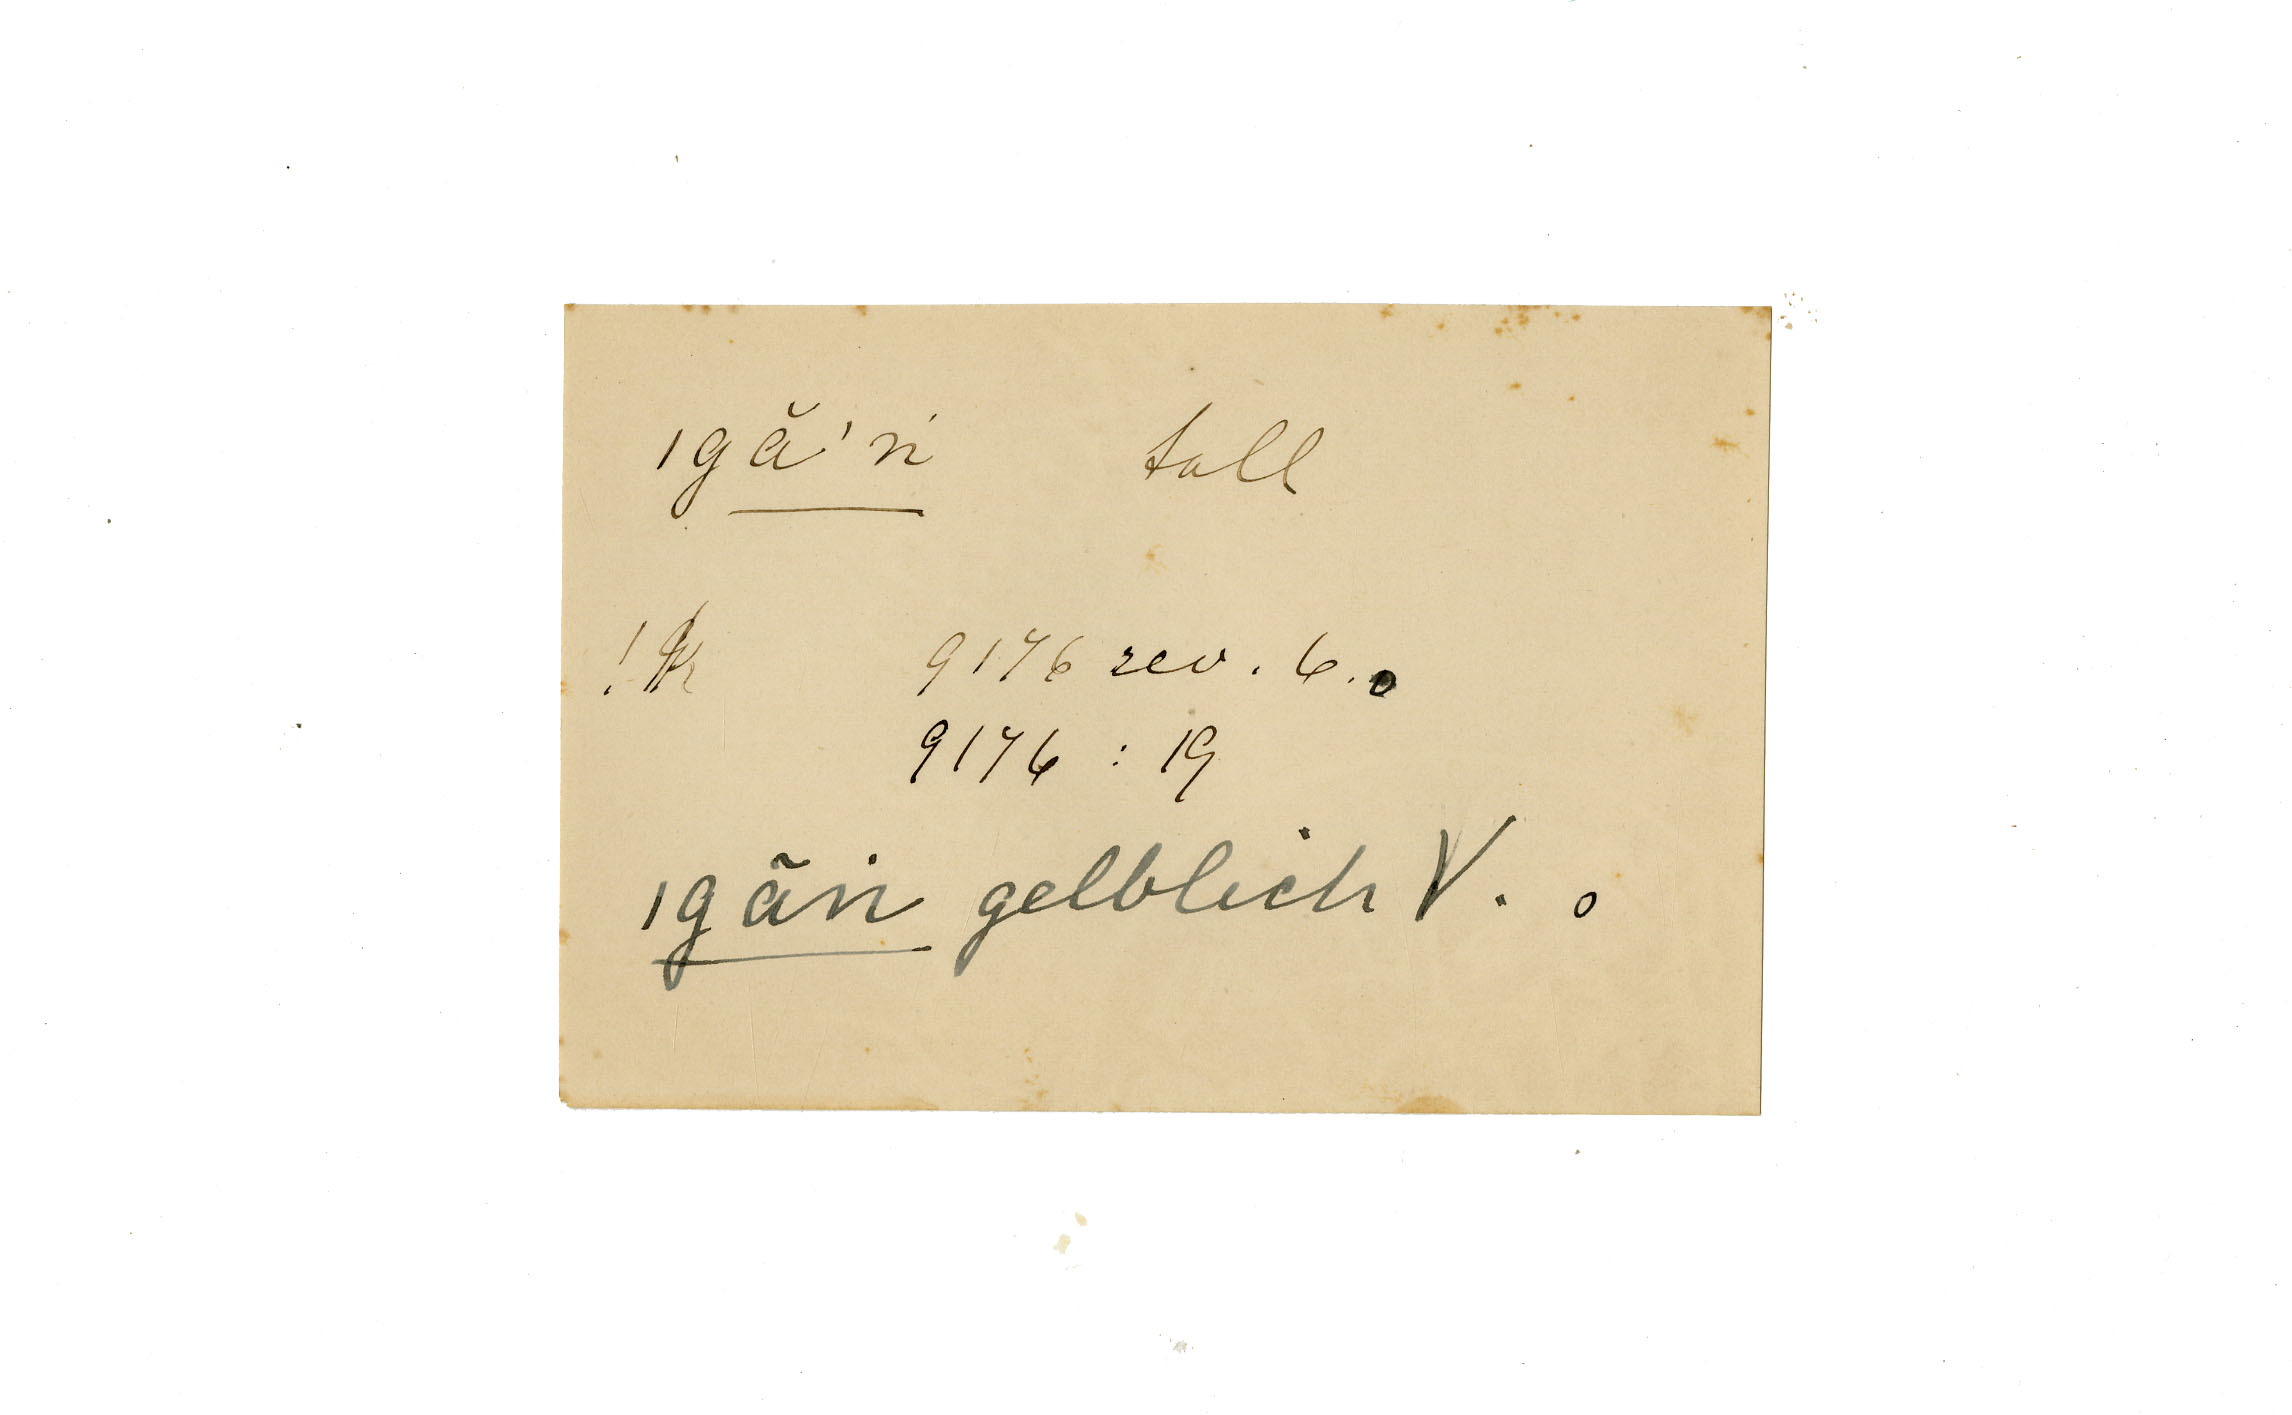 ıgã'ṅ tall
!k 9176 rev. 6.
9176 : 19
ıgãṅ gelblich V.